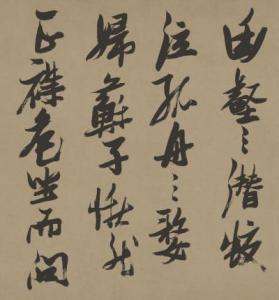 幽壑之潛蛟
泣孤舟之嫠
婦蘇子愀然
正襟危坐而問